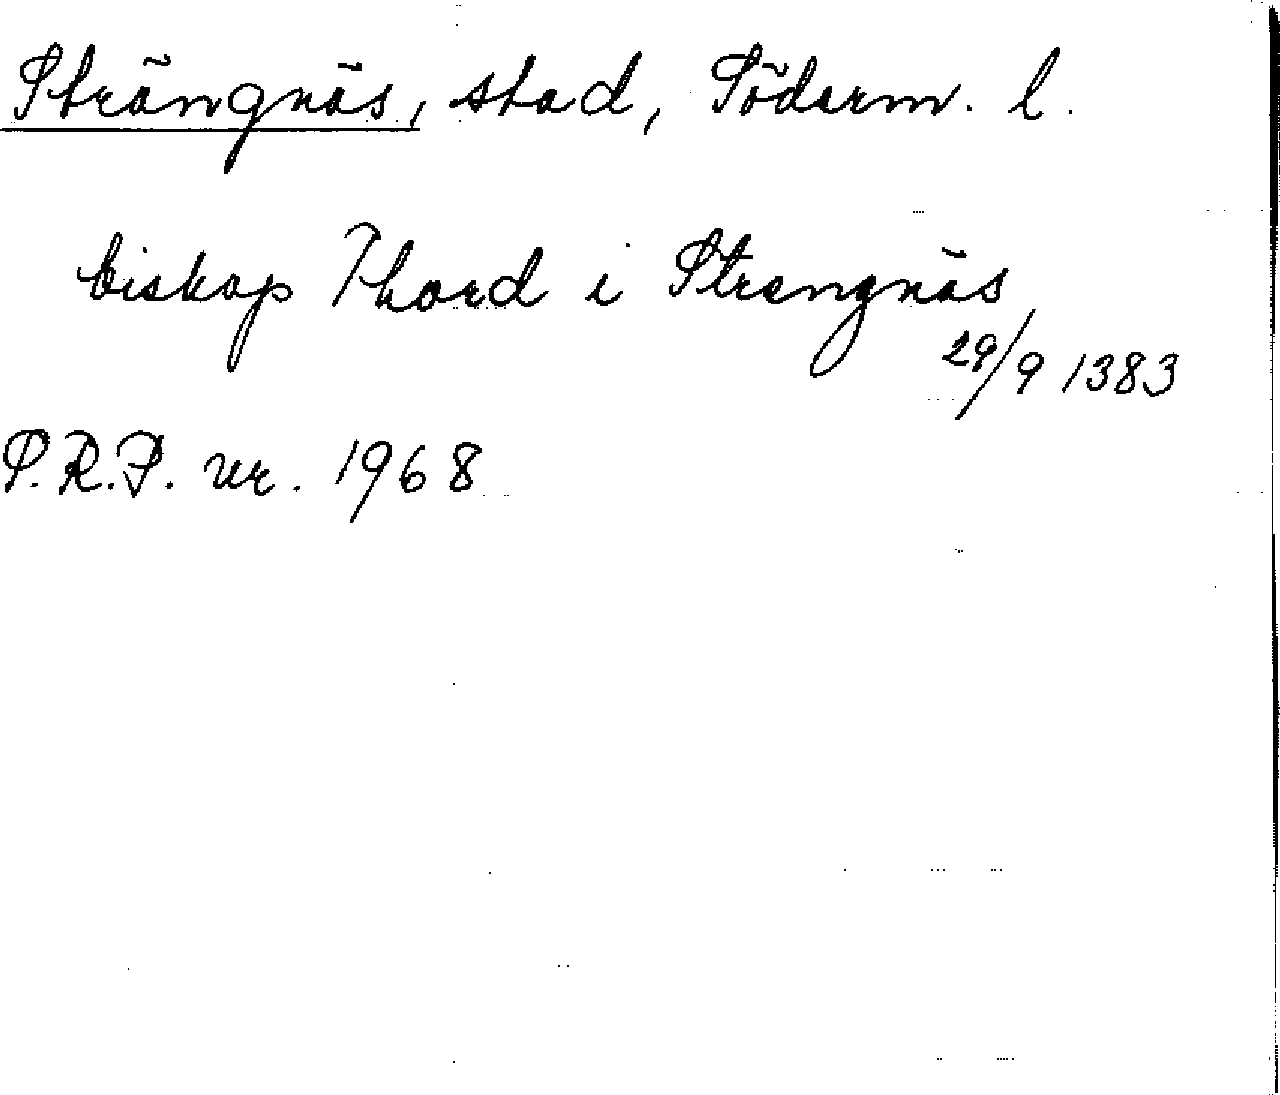 Strängnäs, stad, Söderm. l.
biskop Thord i Strengnäs
29/9 1383
S.R.P. nr. 1968